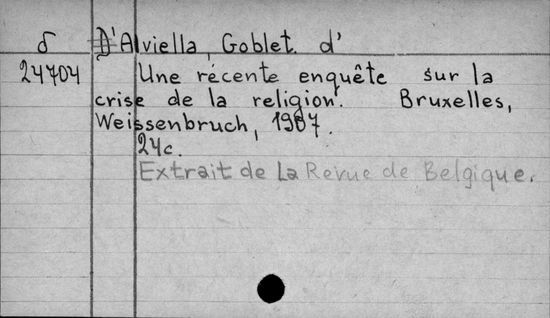 δ D'Alviella, Goblet. d'
24704 Une récente enquête sur la
crise de la religion. Bruxelles,
Weissenbruch, 1907.
24c.
Extrait de La Revue de Belgique.